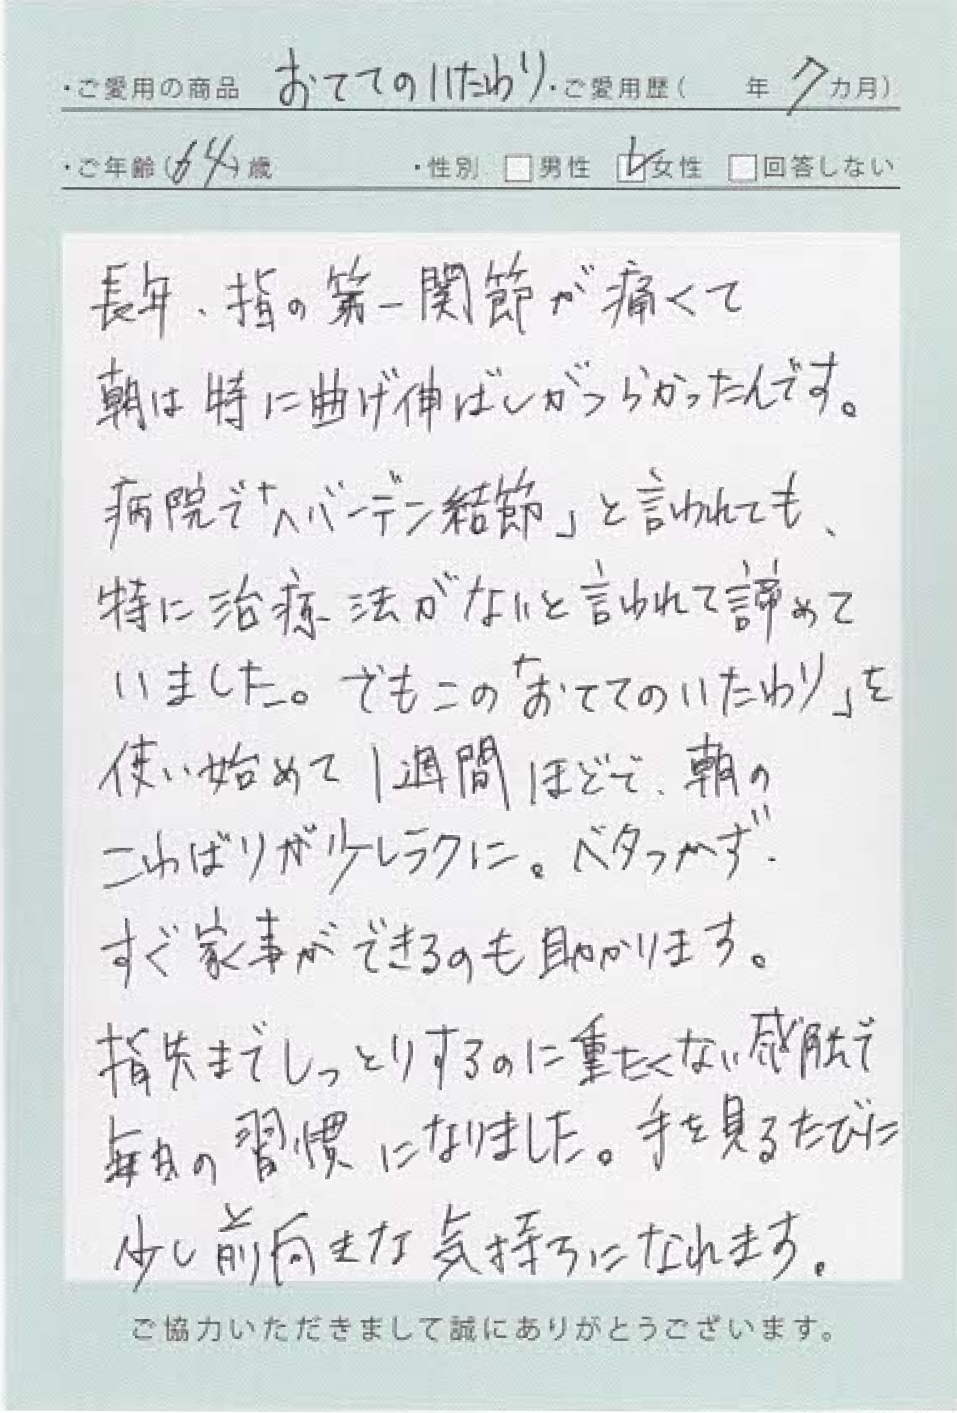 ・ご愛用の商品 おててのいたわり ・ご愛用歴( 年 7カ月)
・ご年齢(64)歳 ・性別 □男性 ☑女性 □回答しない
長年、指の第一関節が痛くて
朝は特に曲げ伸ばしがつらかったんです。
病院で「ヘバーデン結節」と言われても、
特に治療法がないと言われて諦めて
いました。でもこの「おててのいたわり」を
使い始めて1週間ほどで、朝の
こわばりが少しラクに。ベタつかず、
すぐ家事ができるのも助かります。
指先までしっとりするのに重たくない感触で
毎日の習慣になりました。手を見るたびに
少し前向きな気持ちになれます。
ご協力いただきまして誠にありがとうございます。